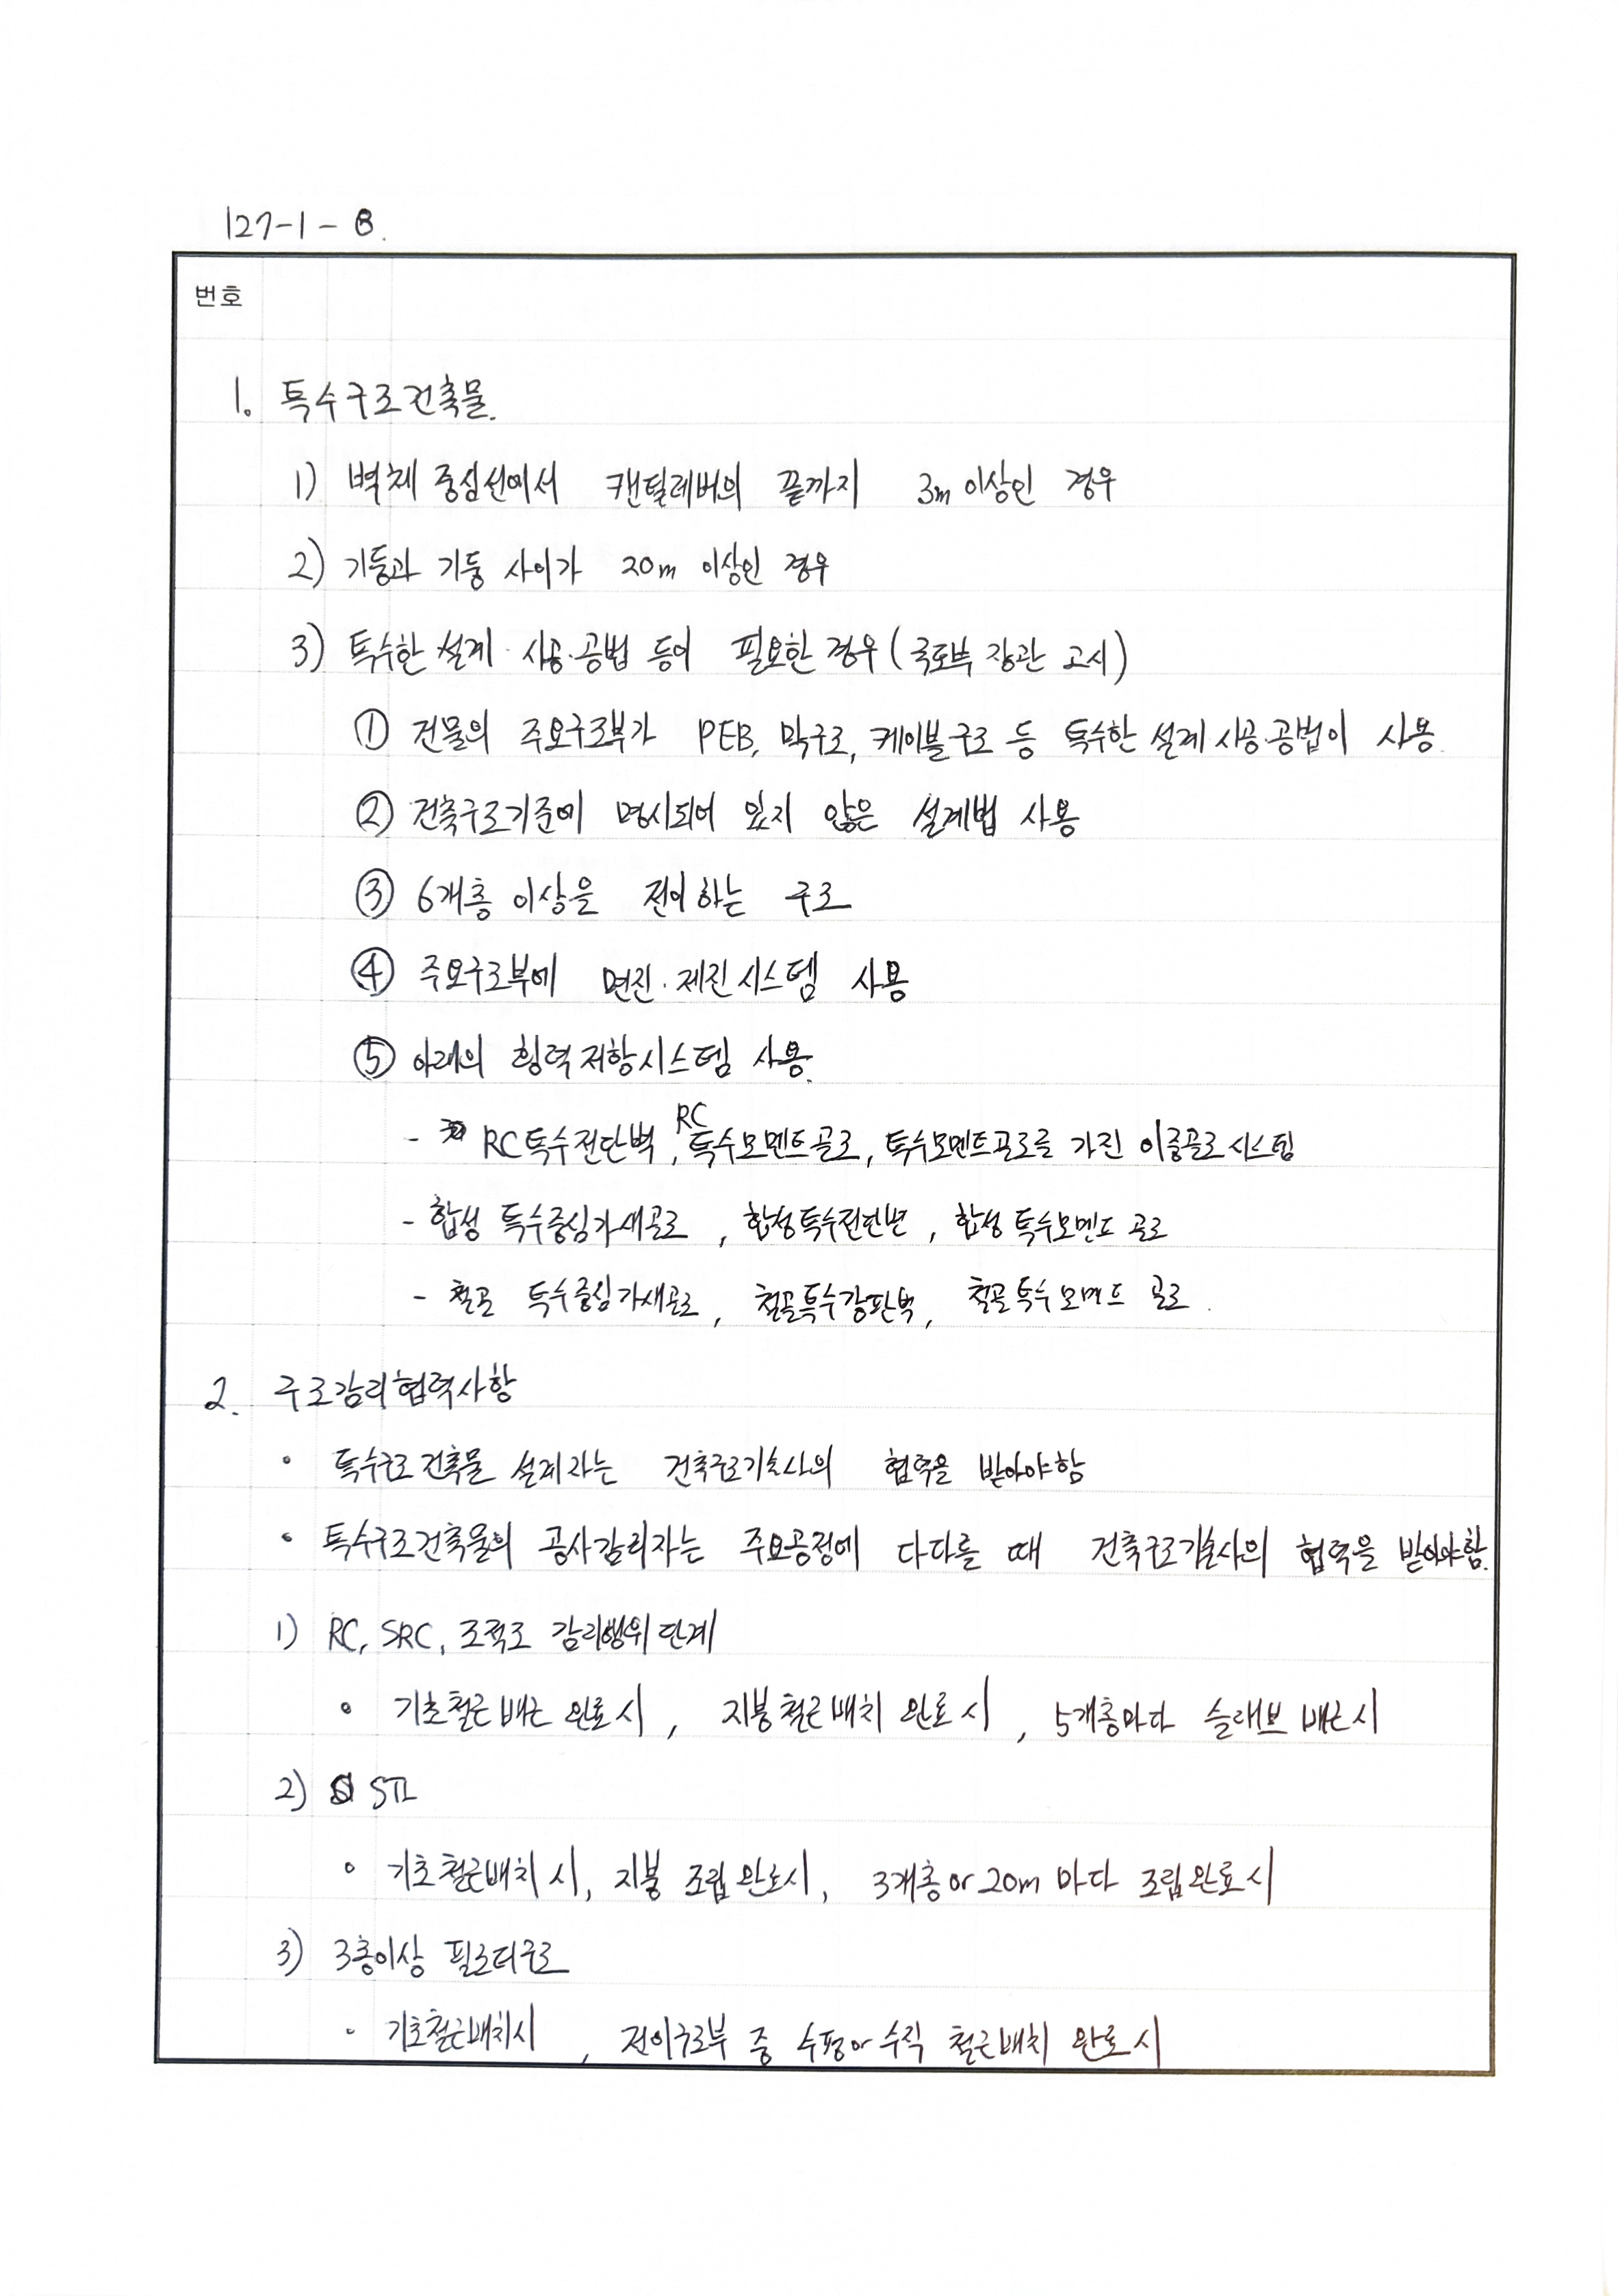 127-1-8.
번호
1. 특수구조건축물.
1) 벽체 중심선에서 캔틸레버의 끝까지 3m 이상인 경우
2) 기둥과 기둥 사이가 20m 이상인 경우
3) 특수한 설계·시공·공법 등이 필요한 경우 (국토부 장관 고시)
① 건물의 주요구조부가 PEB, 막구조, 케이블구조 등 특수한 설계시공·공법이 사용.
② 건축구조기준에 명시되어 있지 않은 설계법 사용
③ 6개층 이상을 전이하는 구조
④ 주요구조부에 면진·제진시스템 사용
⑤ 아래의 횡력저항시스템 사용.
- RC특수전단벽, RC특수모멘트골조, 특수모멘트골조를 가진 이중골조시스템
- 합성 특수중심가새골조, 합성특수전단벽, 합성 특수모멘트 골조
- 철골 특수중심가새골조, 철골특수강판벽, 철골특수모멘트 골조.
2. 구조감리협력사항
• 특수구조건축물 설계자는 건축구조기술사의 협력을 받아야함
• 특수구조건축물의 공사감리자는 주요공정에 다다를 때 건축구조기술사의 협력을 받아야함.
1) RC, SRC, 조적조 감리행위단계
• 기초철근배근 완료시, 지붕철근배치 완료시, 5개층마다 슬래브 배근시
2) STL
• 기초철근배치시, 지붕 조립완료시, 3개층 or 20m 마다 조립완료시
3) 3층이상 필로티구조
• 기초철근배치시, 전이구조부 중 수평or수직 철근배치 완료시